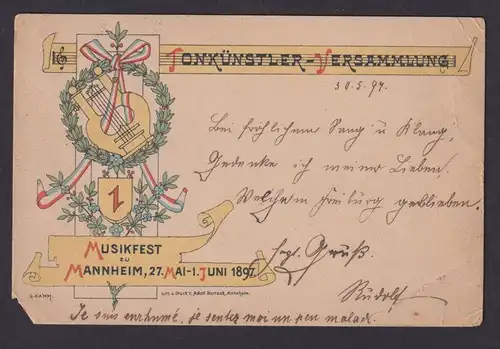 TONKÜNSTLER-VERSAMMLUNG
30.5.97.
Bei fröhlichem Sang u Klang,
Gedenke ich meiner Lieben.
Welche in Freiburg geblieben.
1
MUSIKFEST
ZU
MANNHEIM, 27. MAI-1. JUNI 1897.
Gruß.
Rudolf
G. HAMM.
Lith. u. Druck v. Adolf Mannheim.
Je suis enrhumé, je sentez moi un peu malade.